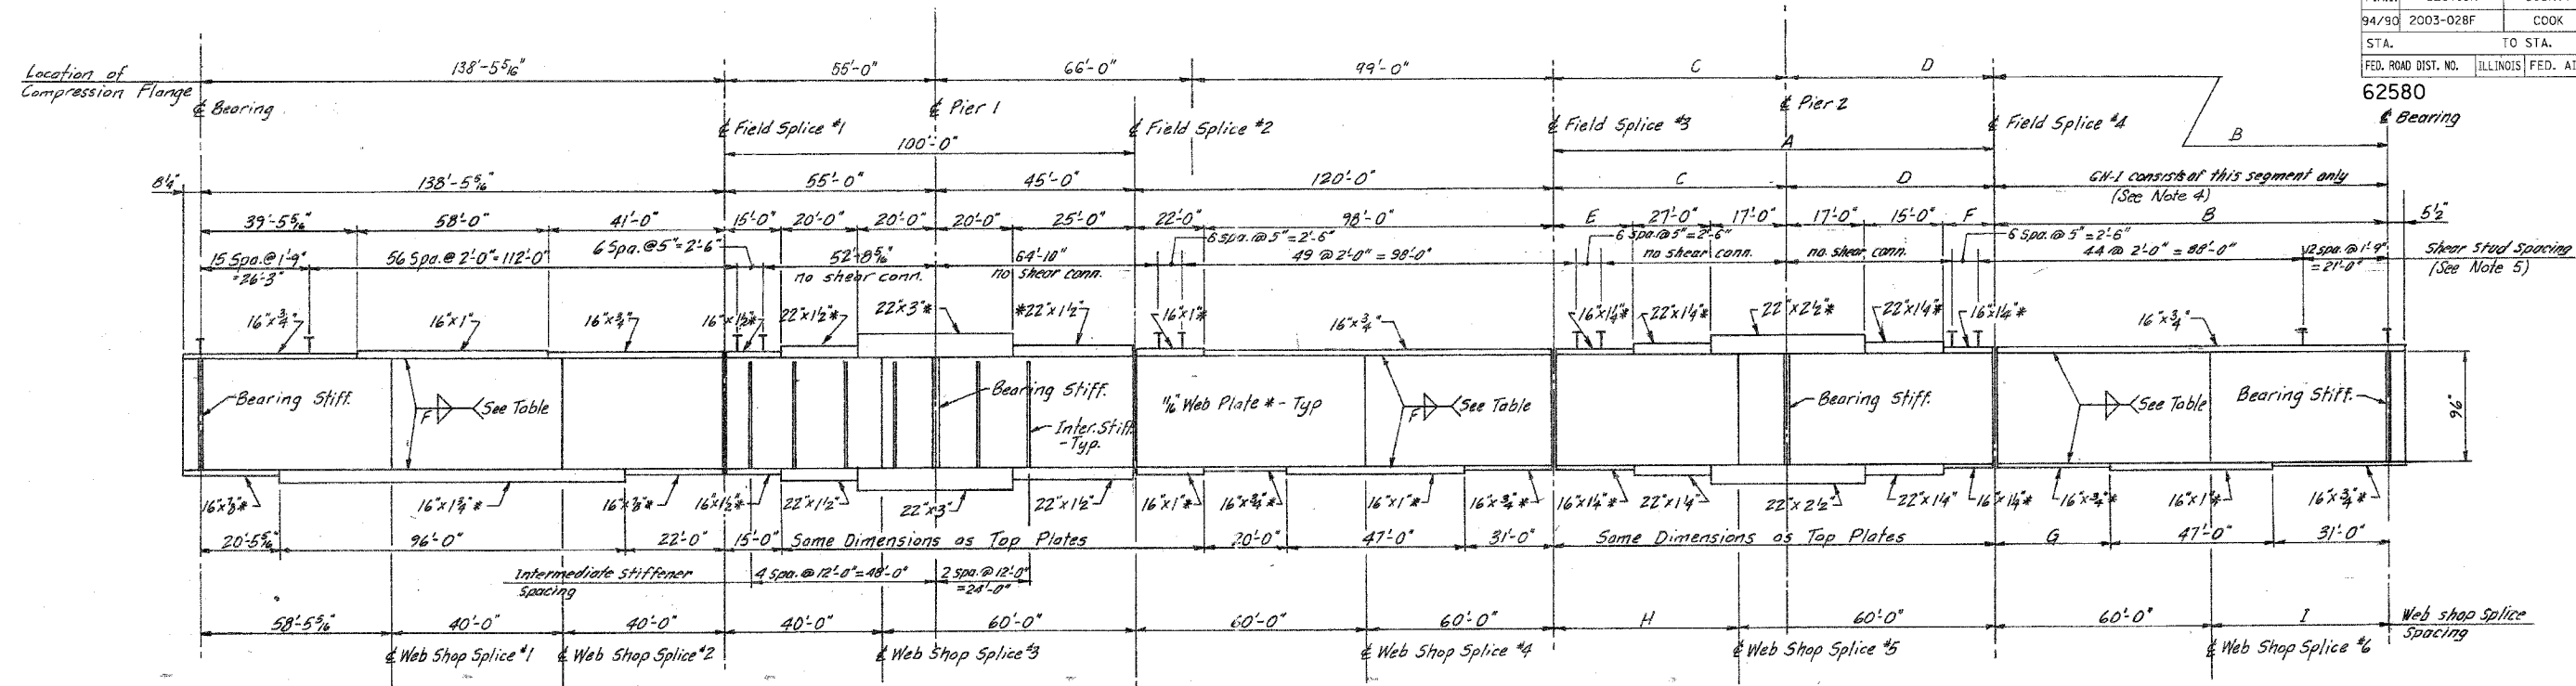 94/90 2003-028F COOK
STA. TO STA.
FED. ROAD DIST. NO. ILLINOIS FED. AI
62580
Location of
Compression Flange
138'-5 5/16" 55'-0" 66'-0" 99'-0" C D
℄ Bearing
℄ Pier 1
℄ Pier 2
℄ Bearing
℄ Field Splice #1
℄ Field Splice #2
℄ Field Splice #3
℄ Field Splice #4
100'-0" A B
8¼" 138'-5 5/16" 55'-0" 45'-0" 120'-0" C D GN-1 consists of this segment only
(See Note 4)
39'-5 5/16" 58'-0" 41'-0" 15'-0" 20'-0" 20'-0" 20'-0" 25'-0" 22'-0" 98'-0" E 27'-0" 17'-0" 17'-0" 15'-0" F B 5½"
6 Spa. @ 5" = 2'-6" 6 Spa. @ 5" = 2'-6" 6 Spa. @ 5" = 2'-6" 6 Spa. @ 5" = 2'-6"
15 Spa. @ 1'-9" 56 Spa. @ 2'-0" = 112'-0" 52'-8 5/16" 64'-10" 49 @ 2'-0" = 98'-0" no shear conn. no shear conn. 44 @ 2'-0" = 88'-0" 12 spa. @ 1'-9" Shear Stud Spacing
= 26'-3" no shear conn. no shear conn. = 21'-0" (See Note 5)
16"x¾" 16"x1" 16"x¾" 16"x1½"* 22"x1½"* 22"x3"* *22"x1½" 16"x1"* 16"x¾" 16"x1¼"* 22"x1¼"* 22"x2½"* 22"x1¼"* 16"x1¼"* 16"x¾"
Bearing Stiff. F See Table Bearing Stiff. 11/16" Web Plate * - Typ F See Table Bearing Stiff. See Table Bearing Stiff. 96"
Inter. Stiff.
- Typ.
16"x⅞"* 16"x1¾"* 16"x⅞"* 16"x1½"* 22"x1½" 22"x3" 22"x1½" 16"x1"* 16"x¾"* 16"x1"* 16"x¾"* 16"x1¼"* 22"x1¼" 22"x2½" 22"x1¼" 16"x1¼"* 16"x¾"* 16"x1"* 16"x¾"*
20'-5 5/16" 96'-0" 22'-0" 15'-0" Same Dimensions as Top Plates 20'-0" 47'-0" 31'-0" Same Dimensions as Top Plates G 47'-0" 31'-0"
Intermediate Stiffener 4 Spa. @ 12'-0" = 48'-0" 2 Spa. @ 12'-0"
Spacing = 24'-0"
58'-5 5/16" 40'-0" 40'-0" 40'-0" 60'-0" 60'-0" 60'-0" H 60'-0" 60'-0" I Web shop Splice
Spacing
℄ Web Shop Splice #1 ℄ Web Shop Splice #2 ℄ Web Shop Splice #3 ℄ Web Shop Splice #4 ℄ Web Shop Splice #5 ℄ Web Shop Splice #6